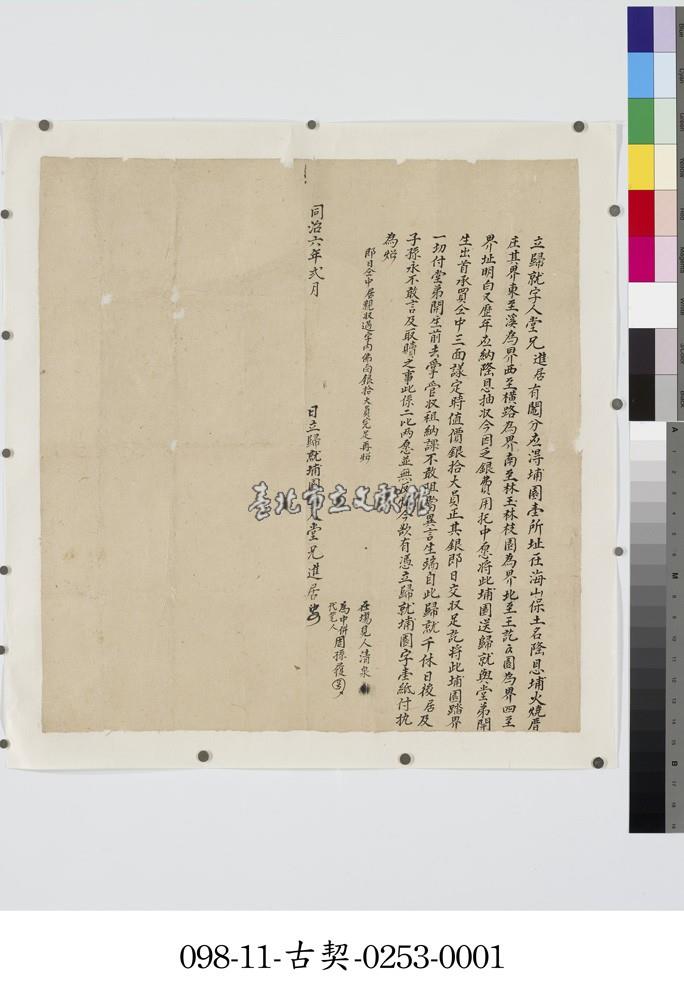 立歸就字人堂兄進居有鬮分應得埔園壹所址在海山保土名隆恩埔火燒厝
庄其界東至溪為界西至橫路為界南至林玉林枝園為界北至王訖官園為界四至
界址明白又歷年應納隆恩抽收今因乏銀費用托中愿將此埔園送歸就與堂弟開
生出首承買仝中三面議定時值價銀拾大員正其銀即日交收足訖將此埔園踏界
一切付堂弟開生前去掌管收租納課不敢阻當異言生端自此歸就千休日後居及
子孫永不敢言及取贖之事此係二比兩愿並無 今欲有憑立歸就埔園字壹紙付执
為炤
即日仝中居親收過字內佛面銀拾大員完足再炤
在場見人清泉
為中併代笔人周孫 
同治六年弍月 日立歸就埔園 堂兄進居
臺北市立文獻館
098-11-古契-0253-0001